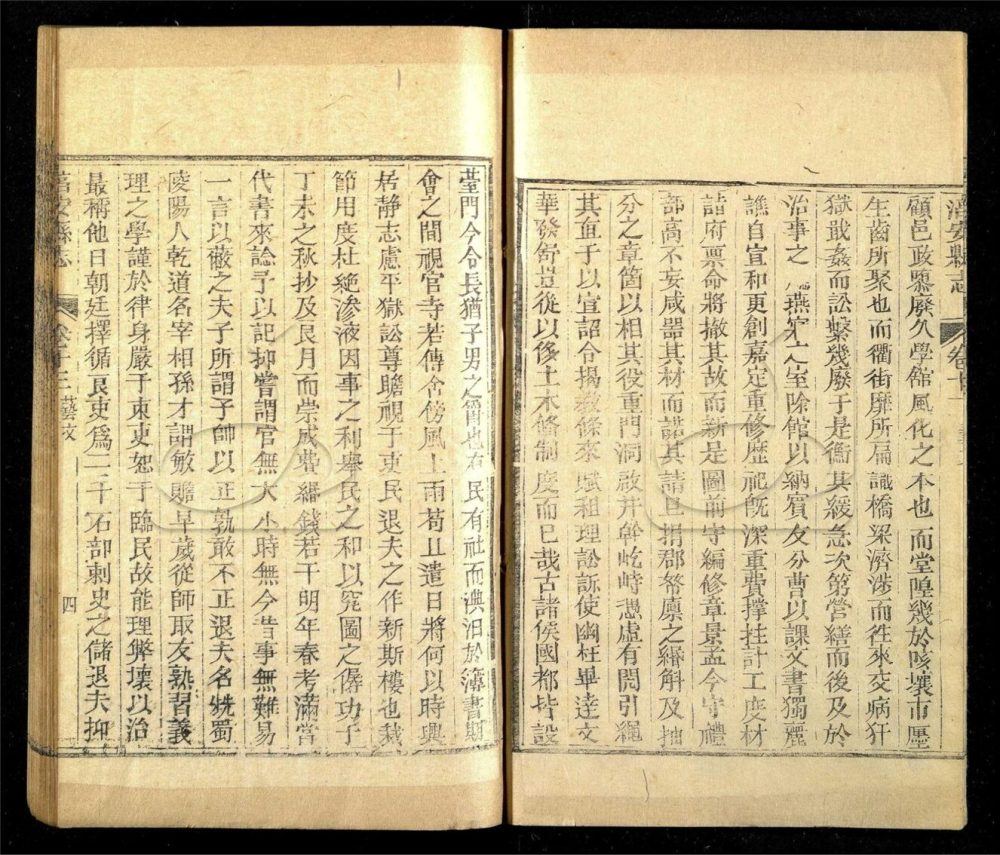 淳安縣志 卷十
顧邑政隳廢久學館風化之本也而堂隍幾於咳壤市廛
生齒所聚也而衢街靡所扁識橋梁濟涉而徃來交病犴
獄戢姦而訟繫幾廢于是衡其緩急次第營繕而後及於
治事之 燕之室除館以納賓友分曹以課文書獨麗
譙自宣和更創嘉定重修歴祀旣深重費撑拄計工度材
請府票命將撤其故而新是圖前守編修章景孟今守禮
部高不妄咸器其材而諾其請且捐郡帑廪之緡斛及抽
分之章箇以相其役重門洞啟井幹屹峙憑虛有閣引繩
其直于以宣詔令揭敎條來賦租理訟訴使幽枉畢達文
華發舒豈從以侈土木脩制度而已哉古諸侯國都皆設
䑓門今令長猶子男之爵也有民有社而澳汨於簿書期
會之間視官寺若傳舍傍風上雨苟且遣日將何以時興
居静志慮平獄訟尊瞻視于吏民退夫之作新斯樓也裁
節用度杜絶滲液因事之利舉民之和以究圖之僝功于
丁未之秋抄及艮月而崇成費緡錢若干明年春考滿當
代書來諗予以記抑嘗謂官無大小時無今昔事無難易
一言以蔽之夫子所謂子帥以正孰敢不正退夫名兟蜀
陵陽人乾道名宰相孫才謂敏贍早歲從師取友熟習義
理之學謹於律身嚴于束吏恕于臨民故能理弊壊以治
最稱他日朝廷擇循良吏爲二千石部刺史之儲退夫抑
淳安縣志 卷十三 藝文 四